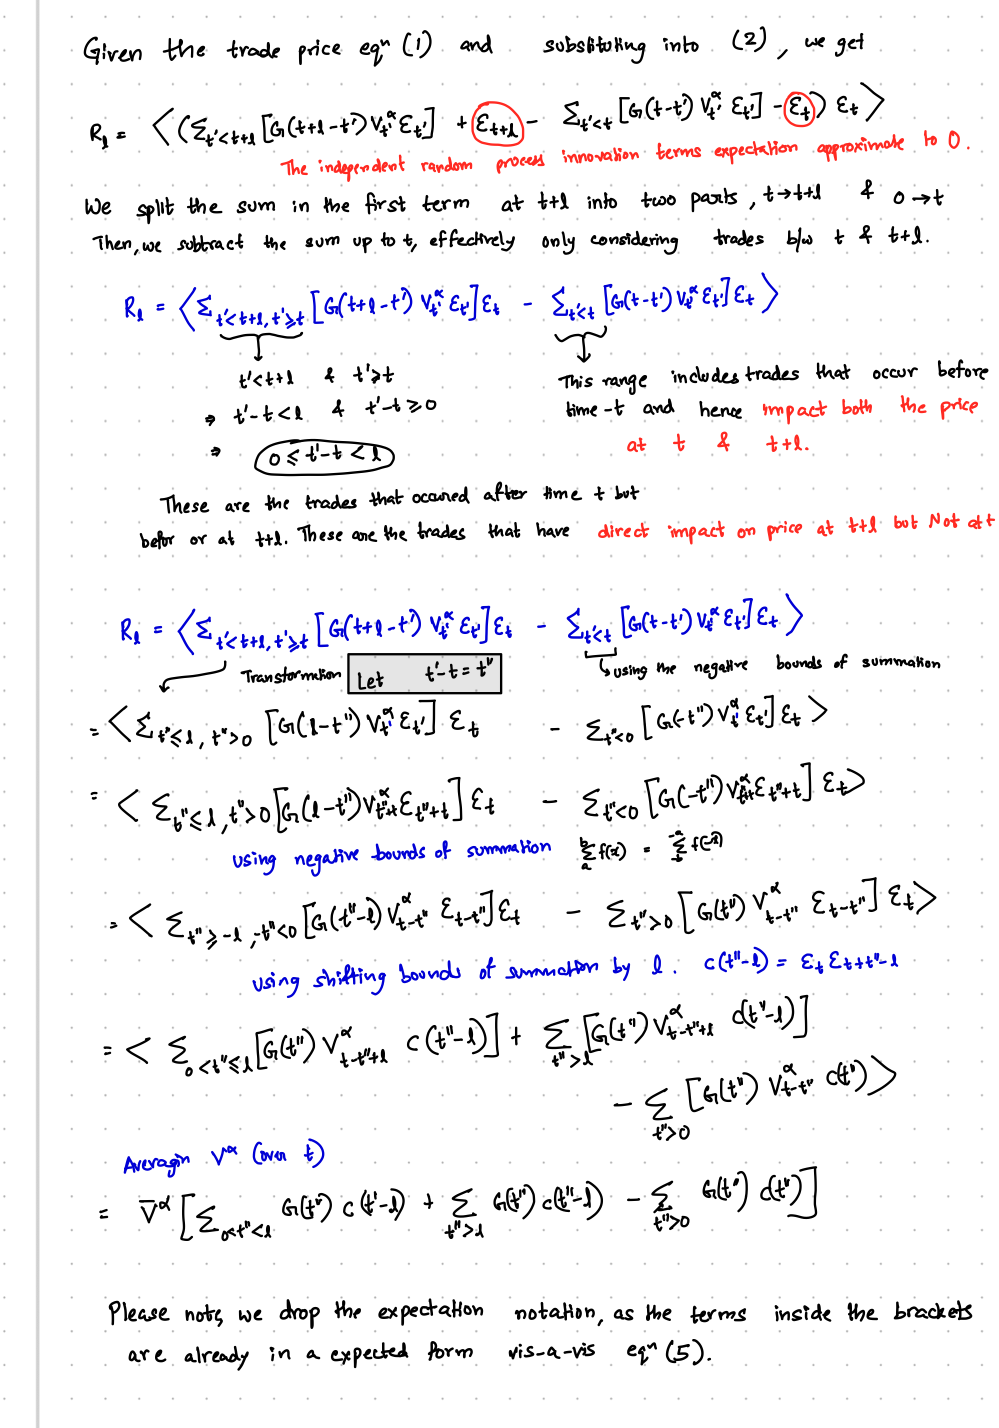 Given the trade price eqⁿ (1) and substituting into (2), we get
R_l = ⟨(Σ_{t'<t+l} [G(t+l-t') V_{t'}^α ε_{t'}] + ε_{t+l} - Σ_{t'<t} [G(t-t') V_{t'}^α ε_{t'}] - ε_t) ε_t⟩
The independent random process innovation terms expectation approximate to 0.
We split the sum in the first term at t+l into two parts, t→t+l & 0→t
Then, we subtract the sum up to t, effectively only considering trades b/w t & t+l.
R_l = ⟨Σ_{t'<t+l, t'≥t} [G(t+l-t') V_{t'}^α ε_{t'}] ε_t - Σ_{t'<t} [G(t-t') V_{t'}^α ε_{t'}] ε_t⟩
t'<t+l & t'≥t
⇒ t'-t<l & t'-t≥0
⇒ 0≤t'-t<l
This range includes trades that occur before
time-t and hence impact both the price
at t & t+l.
These are the trades that occured after time t but
befor or at t+l. These are the trades that have direct impact on price at t+l but Not at t
R_l = ⟨Σ_{t'<t+l, t'≥t} [G(t+l-t') V_{t'}^α ε_{t'}] ε_t - Σ_{t'<t} [G(t-t') V_{t'}^α ε_{t'}] ε_t⟩
Transformation Let t'-t = t''
using the negative bounds of summation
= ⟨Σ_{t''≤l, t''>0} [G(l-t'') V_{t'}^α ε_{t'}] ε_t - Σ_{t''<0} [G(-t'') V_{t'}^α ε_{t'}] ε_t⟩
= ⟨Σ_{t''≤l, t''>0} [G(l-t'') V_{t''+t}^α ε_{t''+t}] ε_t - Σ_{t''<0} [G(-t'') V_{t''+t}^α ε_{t''+t}] ε_t⟩
using negative bounds of summation Σ_a^b f(x) = Σ_{-b}^{-a} f(-x)
= ⟨Σ_{t''≥-l, -t''<0} [G(t''-l) V_{t-t''}^α ε_{t-t''}] ε_t - Σ_{t''>0} [G(t'') V_{t-t''}^α ε_{t-t''}] ε_t⟩
using shifting bounds of summation by l. c(t''-l) = ε_t ε_{t+t''-l}
= ⟨Σ_{0<t''≤l} [G(t'') V_{t-t''+l}^α c(t''-l)] + Σ_{t''>l} [G(t'') V_{t-t''+l}^α c(t''-l)]
- Σ_{t''>0} [G(t'') V_{t-t''}^α c(t'')]⟩
Averagin V^α (over t)
= V̄^α [Σ_{0<t''<l} G(t'') c(t'-l) + Σ_{t''>l} G(t'') c(t''-l) - Σ_{t''>0} G(t'') c(t'')]
Please note, we drop the expectation notation, as the terms inside the brackets
are already in a expected form vis-a-vis eqⁿ (5).